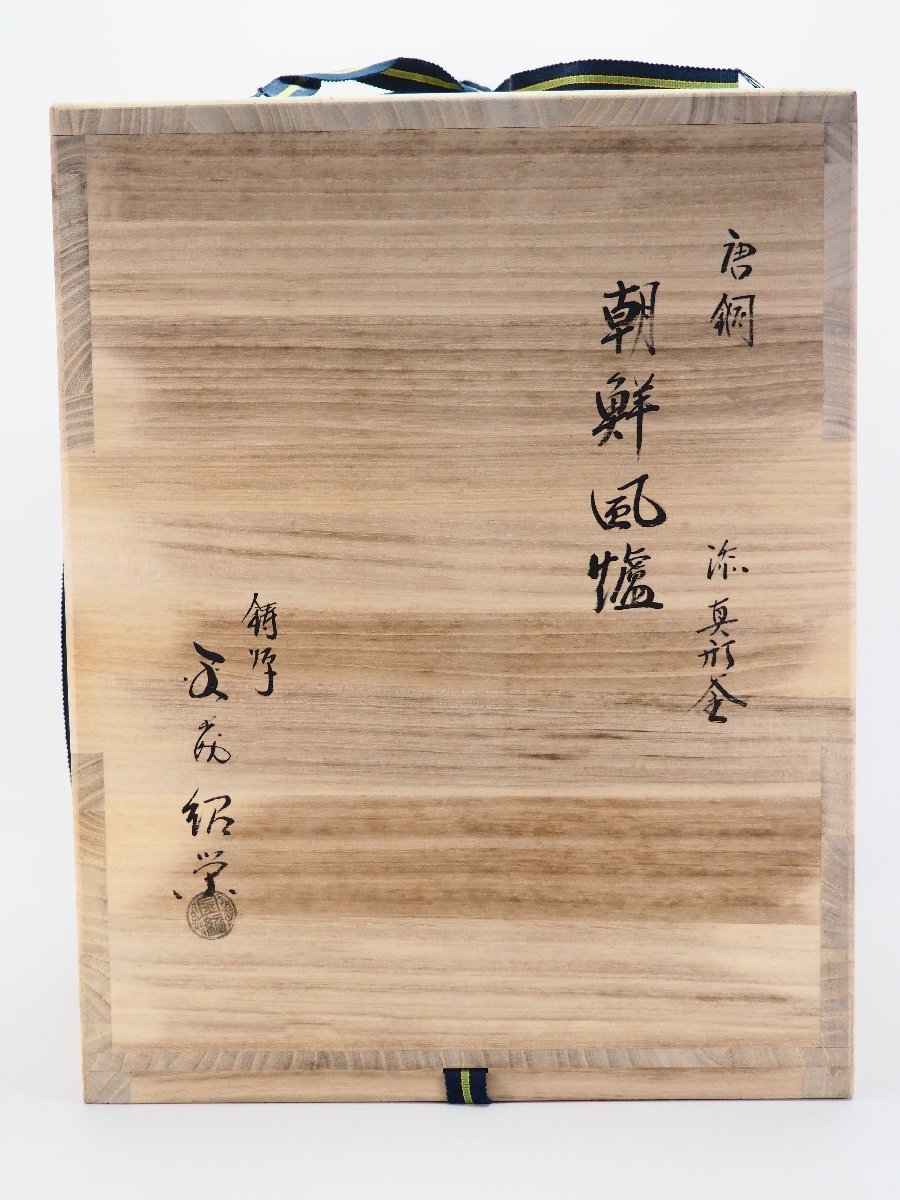 唐銅
朝鮮風爐
添真形釜
鋳師
紹栄